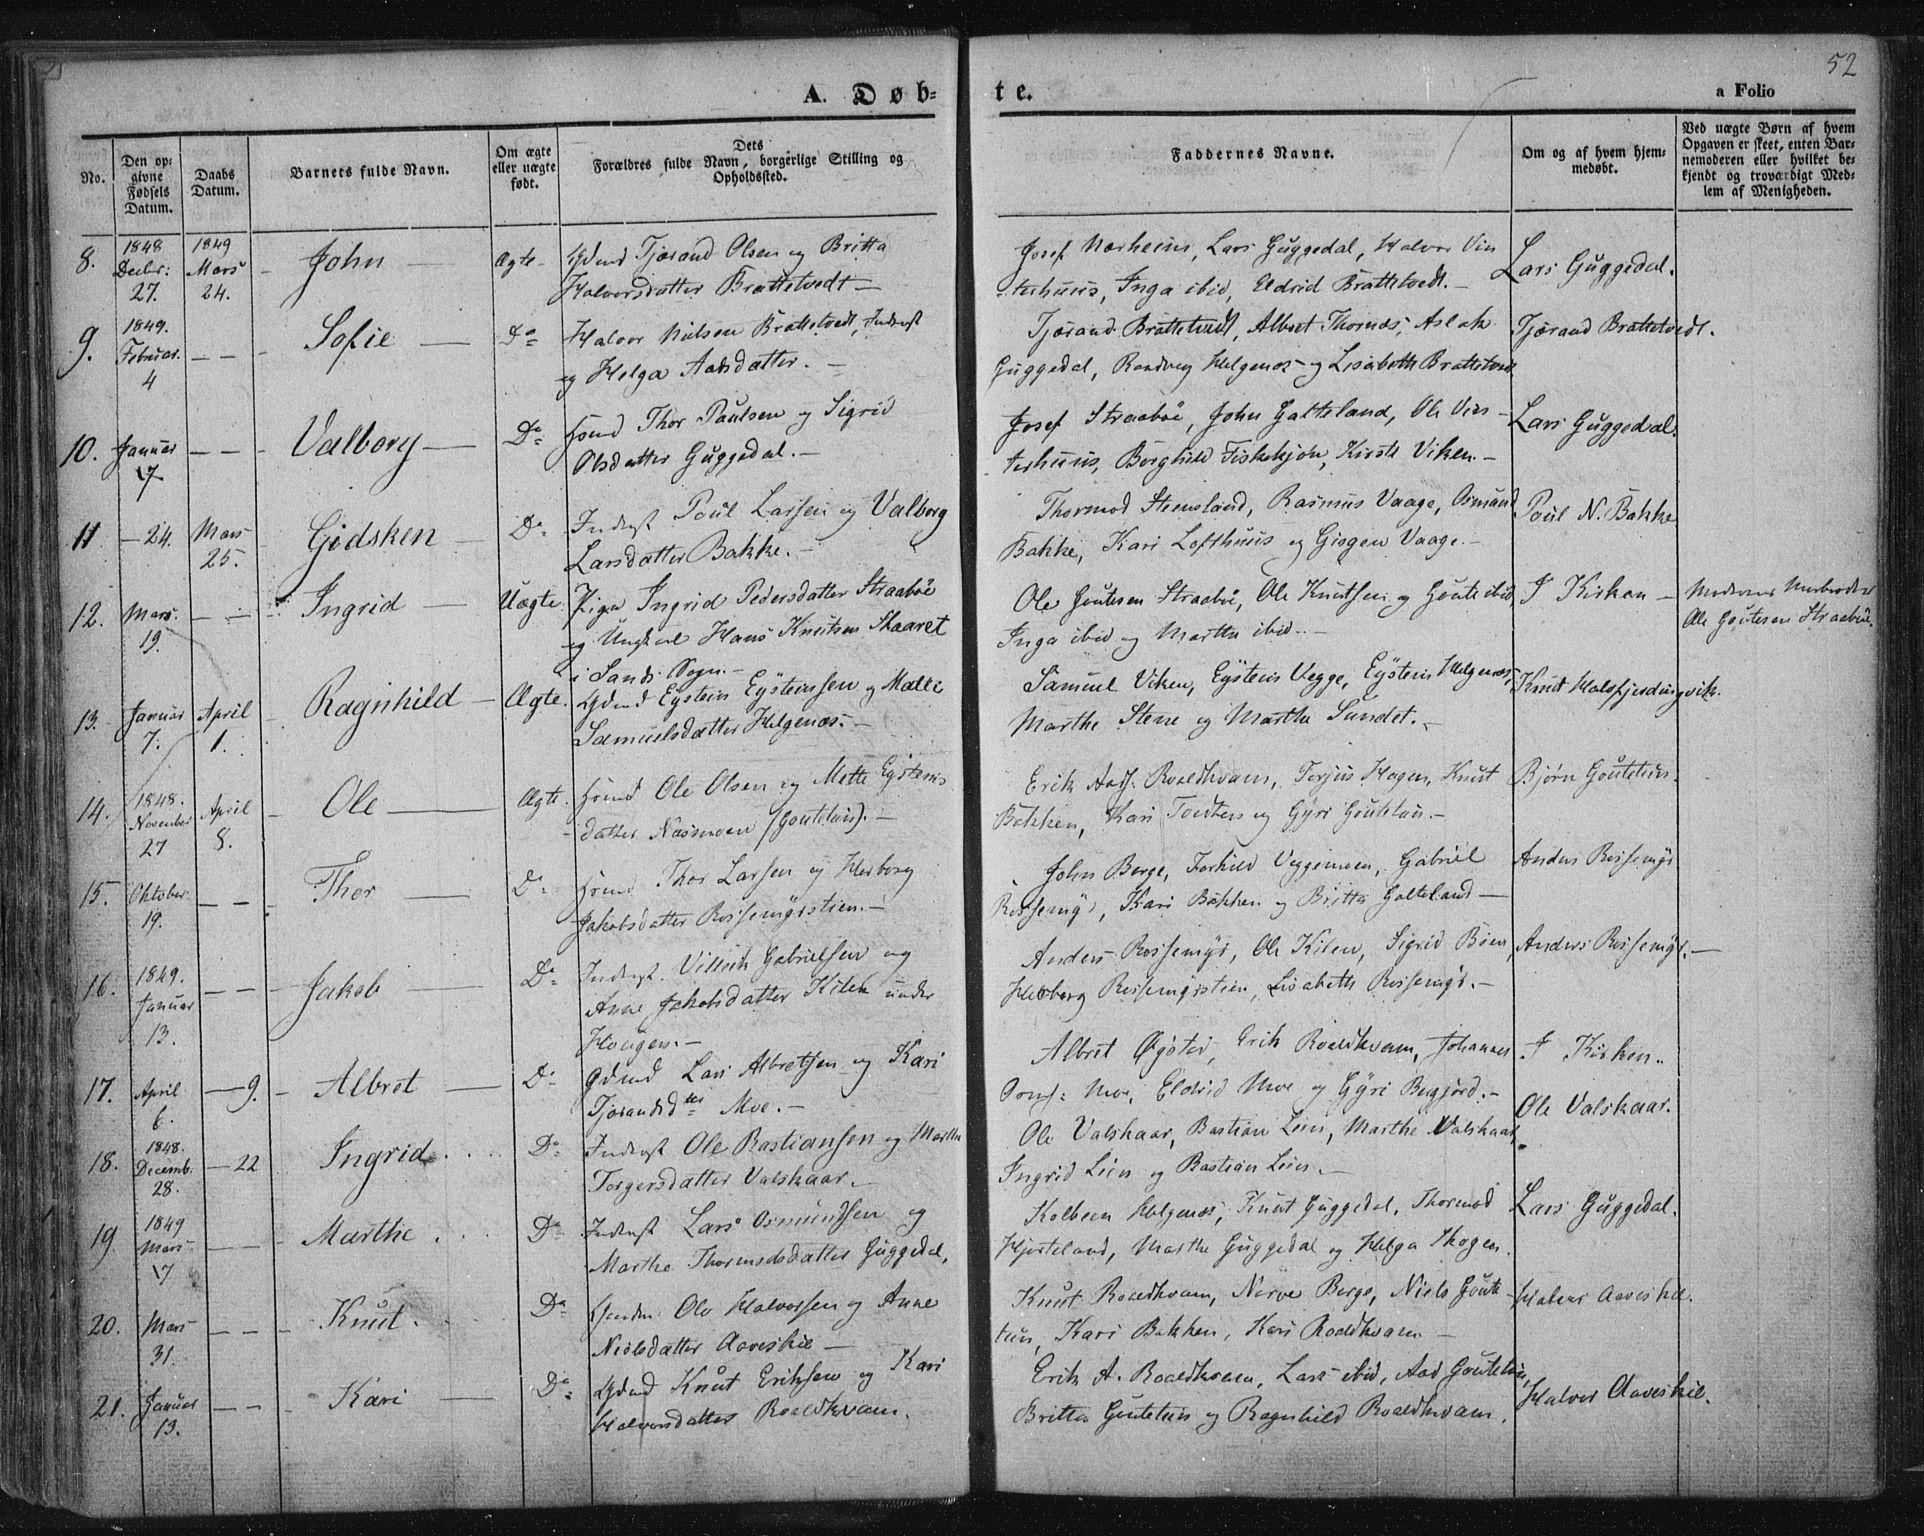 52
A. Døb-
te.
a Folio
No.
Den op-
givne
Fødsels
Datum.
Daabs
Datum.
Barnets fulde Navn.
Om ægte
eller uægte
født.
Dets
Forældres fulde Navn, borgerlige Stilling og
Opholdssted.
Faddernes Navne.
Om og af hvem hjem-
medøbt.
Ved uægte Børn af hvem
Opgaven er skeet, enten Bar-
nemoderen eller hvilket be-
kjendt og troværdigt Med-
lem af Menigheden.
8.
1848
Decbr:
27.
1849
Mars
24.
John
Ægte
Gdmd Tjærand Olsen og Britta
Halvorsdatter Brattetvedt
Josef Nærheim, Lars Guggedal, Halvor Vin
terhuus, Inga ibid, Eldrid Brattetvedt.
Lars Guggedal.
9.
1849.
Februar.
4
Sofie
Do
Halvor Nielsen Brattetvedt, Inderst
og Helga Aadsdatter.
Tjærand Brattetvedt, Albret Thornæs, Aslak
Guggedal, Randveg Helgenæs og Lisabeth Brattetved
Tjærand Brattetvedt.
10.
Januar
17
Valborg
Do
Hmd Thor Paulsen og Sigrid
Olsdatter Guggedal.
Josef Straabøe, John Galteland, Ole Vin-
terhuus, Borghild Fiskekjøn, Kirsti Viken.
Lars Guggedal.
11
24.
Mars
25.
Gidsken
Do
Inderst Poul Larsen og Valborg
Larsdatter Bakke.
Thormod Steinsland, Rasmus Vaage, Osmund
Bakke, Kari Lofthuus og Gisgen Vaage.
Poul N. Bakke
12.
Mars.
19.
Ingrid
Uægte.
Pige Ingrid Pedersdatter Straabøe
og Ungkarl Hans Knutsen Skaaret
i Sands Sogn.
Ole Goutesen Straabøe, Ole Knutsen og Goute ibid,
Inga ibid og Martha ibid.
I Kirken
Moderens
Ole Goutesen Straabøe.
13.
Januar
7.
April
1.
Ragnhild
Ægte.
Gdmd Eystein Eysteinsen og Malle
Samuelsdatter Helgenæs.
Samuel Viken, Eystein Vegge, Eystein Helgenæs,
Marthe Stene og Martha Sundet.
Knut Halsfjordingvik.
14.
1848.
November
27
April
8.
Ole
Ægte.
Hmd Ole Olsen og Mette Eysteins
datter Næsmoen (Goutetun).
Erik Aads. Roaldkvam, Torjus Hagen, Knut
Bakken, Kari og Gyri Goutetun.
Bjørn Goutetun.
15.
Oktober.
19.
Thor
Do
Hmd Thor Larsen og Herborg
Jakobsdatter Rossemyrstien.
John Berge, Torkild Veggemoen, Gabriel
Rossemyr, Kari Bakken og Britta Galteland
Anders Rossemyr
16.
1849.
Januar
13.
Jakob
Do
Inderst. Villeik Gabrielsen og
Anne Jakobsdatter Kilen under
Hougen.
Anders Rossemyr, Ole Kilen, Sigrid Bøen,
Herborg Rossemyrstien, Lisabeth Rossemyr.
Anders Rossemyr.
17.
April
6.
9.
Albret
Do
Gdmd Lars Albretsen og Kari
Tjærandsdtr Moe.
Albret Øysted, Erik Roaldkvam, Johannes
Moe, Eldrid Moe og Gyri
I Kirken.
18.
1848.
Decemb.
28.
22
Ingrid
Do
Inderst Ole Bastiansen og Martha
Torgersdatter Valskaar.
Ole Valskaar, Bastian Lein, Marthe Valskaar,
Ingrid Lein og Bastian Lein.
Ole Valskaar.
19.
1849
Mars
17
Marthe
Do
Inderst Lars Osmundsen og
Marthe Thormodsdatter Guggedal.
Kolbeen Helgenæs, Knut Guggedal, Thormod
Hjorteland, Marthe Guggedal og Helga Skogen.
Lars Guggedal.
20.
Mars
31.
Knut.
Do
Olo Halvorsen og Anne
Nielsdatter Aaveskil
Knut Roaldkvam, Narve Berge, Niels Goute
tun, Kari Bakken, Kari Roaldkvam.
Halvor Aaveskil.
21.
Januar
13.
Kari
Do
Gdmd Knut Eriksen og Kari
Halvorsdatter Roaldkvam.
Erik A. Roaldkvam, Lars ibid, Aad Goutetun,
Britta Goutetun og Ragnhild Roaldkvam.
Halvor Aaveskil.